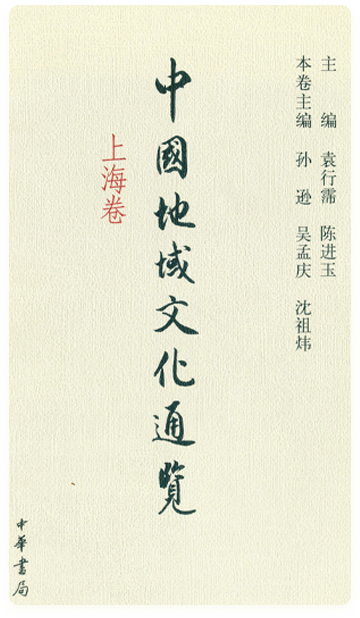 主 编 袁行霈 陈进玉
本卷主编 孙逊 吴孟庆 沈祖炜
中國地域文化通覽
上海卷
中華書局